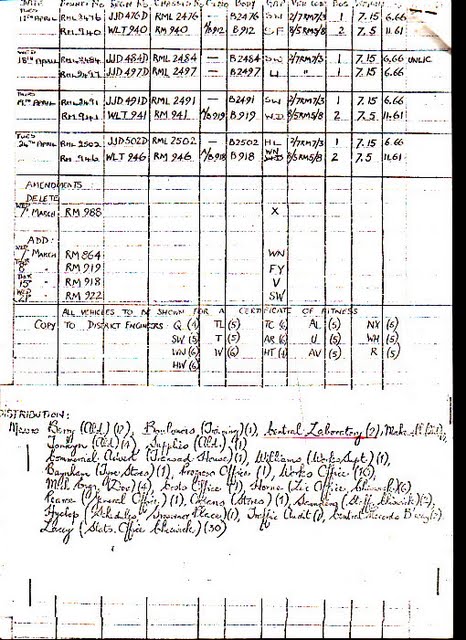 DATE BONNET NO. REGN NO. CHASSIS NO. BODY
TUES 17TH APRIL RML 2476 JJD 476D RML 2476 — B2476 SW 2/7RM7/3 1 7.15 6.66
RM 940 WLT 940 RM 940 B912 SF 8/5RM5/8 2 7.5 11.61
WED 18TH APRIL RML 2484 JJD 484D RML 2484 — B2484 SW 2/7RM7/3 1 7.15 6.66 UNLIC
RML 2497 JJD 497D RML 2497 — B2497 U " 1 7.15 6.66
THURS 19TH APRIL RML 2491 JJD 491D RML 2491 — B2491 SW 2/7RM7/3 1 7.15 6.66
RM 941 WLT 941 RM 941 B919 WD 8/5RM5/8 2 7.5 11.61
TUES 24TH APRIL RML 2502 JJD 502D RML 2502 — B2502 HL 2/7RM7/3 1 7.15 6.66
RM 946 WLT 946 RM 946 B918 WN 8/5RM5/8 2 7.5 11.61
AMENDMENTS:
DELETE
WED 7TH MARCH RM 988 X
ADD:
WED 7TH MARCH RM 864 WN
RM 919 FY
THUR 15TH " RM 918 V
WED 21ST " RM 922 SW
ALL VEHICLES TO BE SHOWN FOR A CERTIFICATE OF FITNESS
COPY TO DISTRICT ENGINEERS Q (4) TL (5) TC (6) AL (5) NY (6)
SW (5) T (5) AR (6) U (5) WH (5)
WN (6) W (6) HT (4) AV (5) R (5)
HW (6)
DISTRIBUTION:
Messrs Berry (Ald.) (12), (Training) (1), Central Laboratory (2),
(Ald) (4), Supplies (Ald.) (1)
Commercial Advert (Transad House) (1), Williams (Works Supt) (1),
Baynham (Tyre Stores) (1), Progress Office (1), Works Office (10)
Mech Engr (Dev) (4), Costs Office (1), Horne (Lic Office, Chiswick) (6)
Pearce (General Office) (1), Owens (Stores) (1), (Staff, Chiswick) (2),
Hyslop (Schedules Grosvenor Place) (1), Traffic Audit (1), Central Records B'way (2)
Lacey (Stats. Office Chiswick) (30)